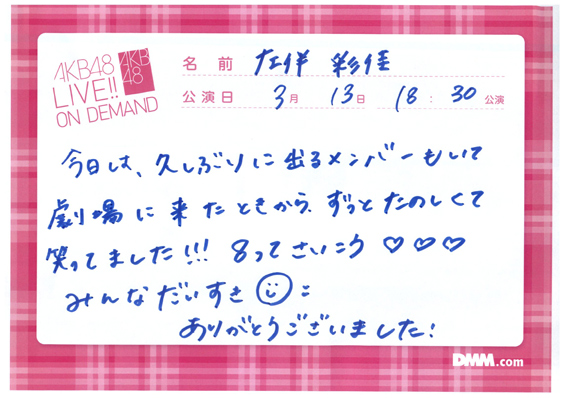 AKB48
LIVE!!
ON DEMAND
AKB
48
名前 左伴 彩佳
公演日 3月 13日 18:30公演
今日は、久しぶりに出るメンバーもいて
劇場に来たときから、ずっとたのしくて
笑ってました!!! 8ってさいこう ♡♡♡
みんなだいすき
ありがとうございました!
DMM.com